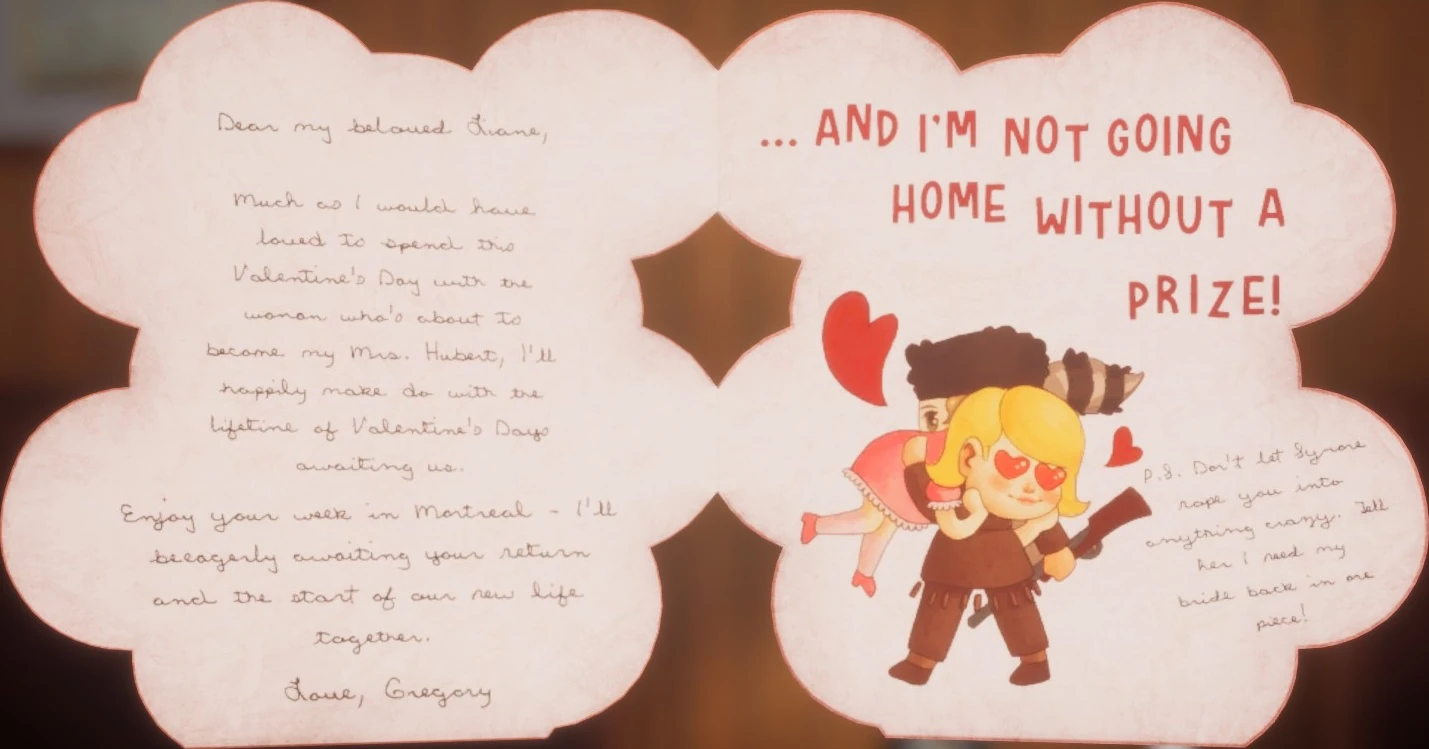 Dear my beloved Liane,
Much as I would have
loved to spend this
Valentine's Day with the
woman who's about to
become my Mrs. Hubert, I'll
happily make do with the
lifetime of Valentine's Days
awaiting us.
Enjoy your week in Montreal - I'll
beeagerly awaiting your return
and the start of our new life
together.
Love, Gregory
... AND I'M NOT GOING
HOME WITHOUT A
PRIZE!
P.S. Don't let
rope you into
anything crazy. Tell
her I need my
bride back in one
piece!